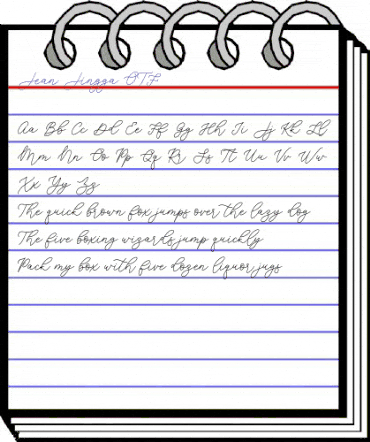 Jean Jingga OTF
Aa Bb Cc Dd Ee Ff Gg Hh Ii Jj Kk Ll
Mm Nn Oo Pp Qq Rr Ss Tt Uu Vv Ww
Xx Yy Zz
The quick brown fox jumps over the lazy dog
The five boxing wizards jump quickly
Pack my box with five dozen liquor jugs